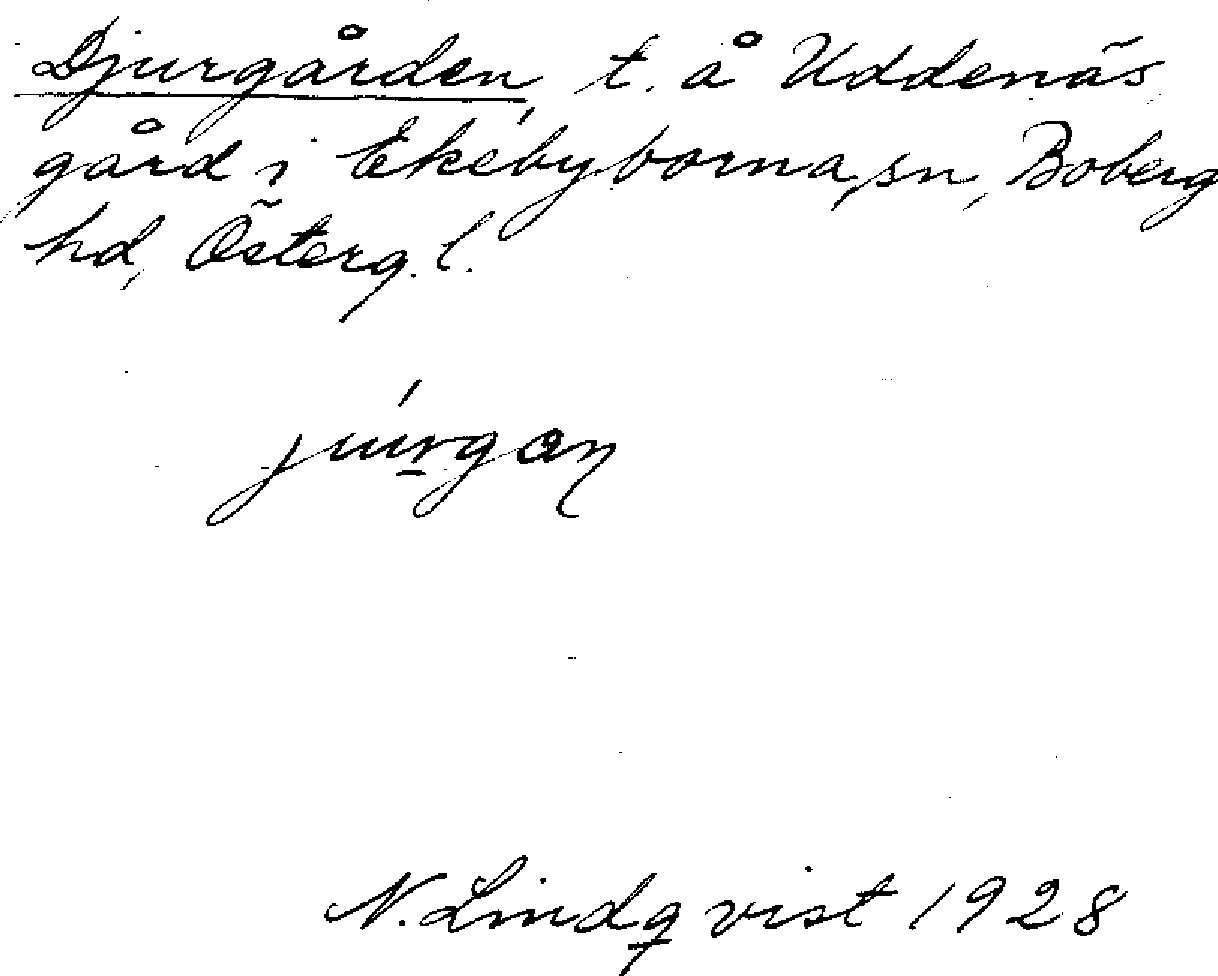 Djurgården, t. å Uddenäs
gård i Ekebyborna sn, Boberg
hd, Österg. l.
júrgan
N. Lindqvist 1928